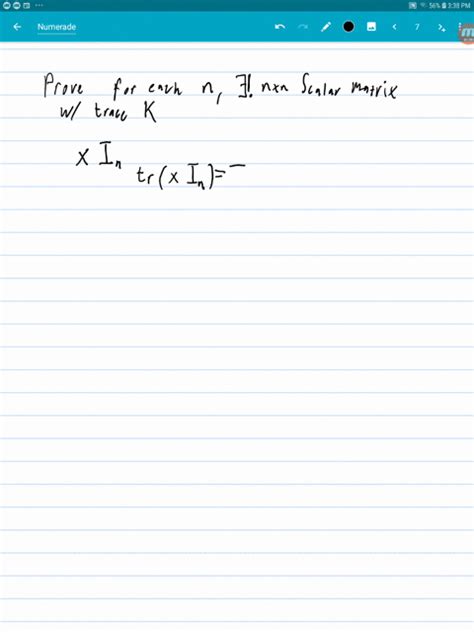 56% 3:38 PM
Numerade
7
Prove for each n, ∃! n×n Scalar matrix
w/ trace K
x Iₙ
tr(x Iₙ)=